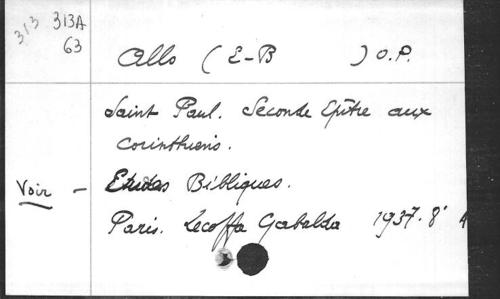 313 313A
63
Allo (E-B ) O.P.
Saint Paul. Seconde Epître aux
Corinthiens.
Voir - Etudes Bibliques.
Paris. Lecoffa Gabalda 1937. 8°